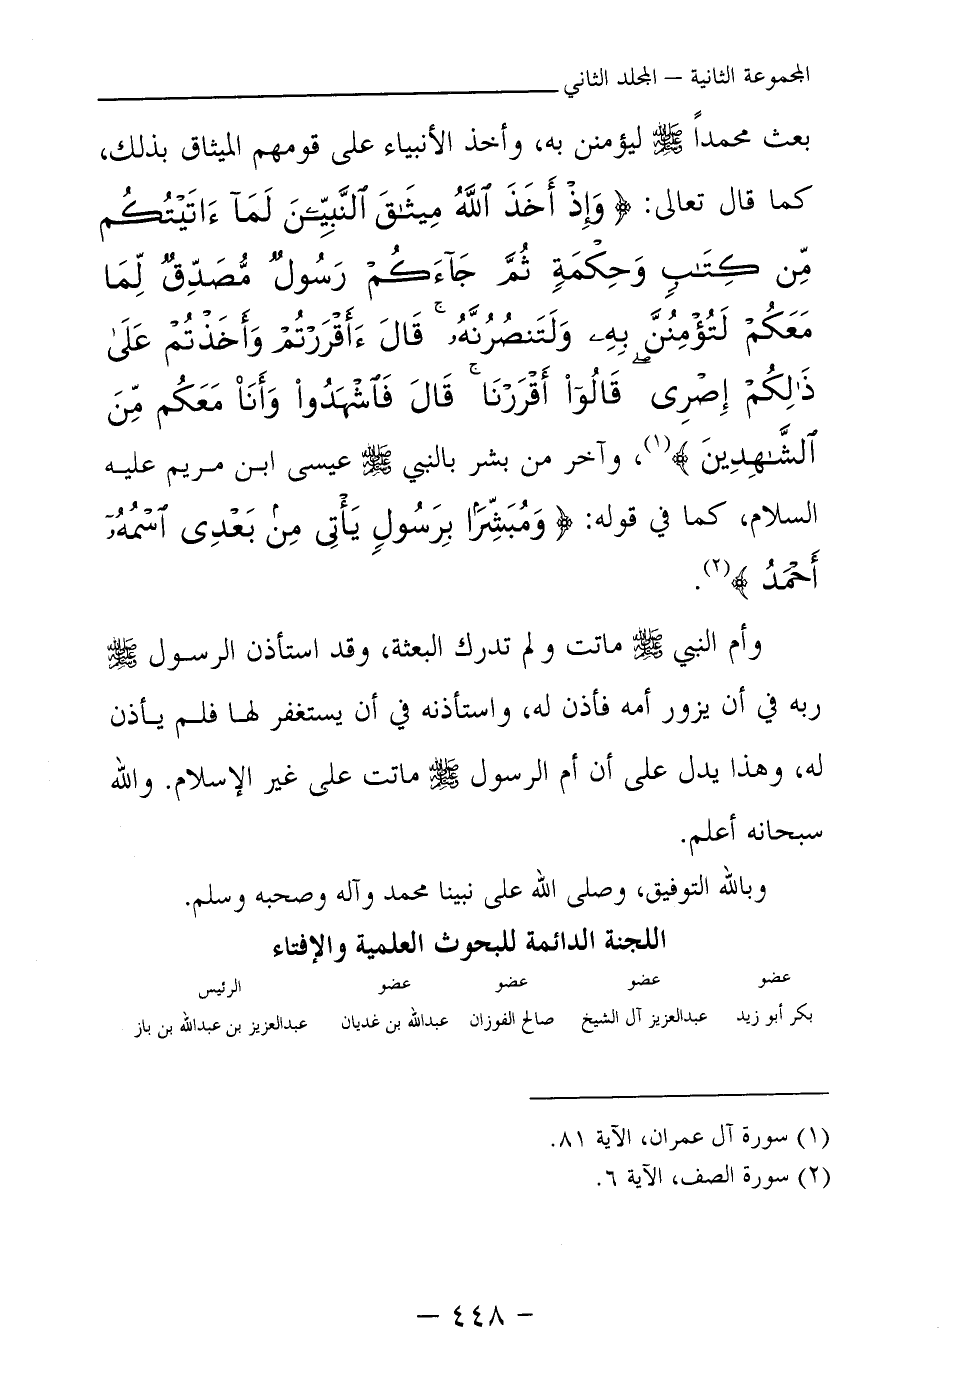 المجموعة الثانية – المجلد الثاني
بعث محمداً ﷺ ليؤمنن به، وأخذ الأنبياء على قومهم الميثاق بذلك،
كما قال تعالى: ﴿ وَإِذْ أَخَذَ ٱللَّهُ مِيثَٰقَ ٱلنَّبِيِّـۧنَ لَمَآ ءَاتَيْتُكُم
مِّن كِتَٰبٍ وَحِكْمَةٍ ثُمَّ جَآءَكُمْ رَسُولٌ مُّصَدِّقٌ لِّمَا
مَعَكُمْ لَتُؤْمِنُنَّ بِهِۦ وَلَتَنصُرُنَّهُۥ ۚ قَالَ ءَأَقْرَرْتُمْ وَأَخَذْتُمْ عَلَىٰ
ذَٰلِكُمْ إِصْرِى ۖ قَالُوٓا۟ أَقْرَرْنَا ۚ قَالَ فَٱشْهَدُوا۟ وَأَنَا۠ مَعَكُم مِّنَ
ٱلشَّٰهِدِينَ ﴾(١)، وآخر من بشر بالنبي ﷺ عيسى ابن مريم عليه
السلام، كما في قوله: ﴿ وَمُبَشِّرًۢا بِرَسُولٍ يَأْتِى مِنۢ بَعْدِى ٱسْمُهُۥٓ
أَحْمَدُ ﴾(٢).
وأم النبي ﷺ ماتت ولم تدرك البعثة، وقد استأذن الرسول ﷺ
ربه في أن يزور أمه فأذن له، واستأذنه في أن يستغفر لها فلم يأذن
له، وهذا يدل على أن أم الرسول ﷺ ماتت على غير الإسلام. والله
سبحانه أعلم.
وبالله التوفيق، وصلى الله على نبينا محمد وآله وصحبه وسلم.
اللجنة الدائمة للبحوث العلمية والإفتاء
عضو عضو عضو عضو الرئيس
بكر أبو زيد عبدالعزيز آل الشيخ صالح الفوزان عبدالله بن غديان عبدالعزيز بن عبدالله بن باز
(١) سورة آل عمران، الآية ٨١.
(٢) سورة الصف، الآية ٦.
– ٤٤٨ –